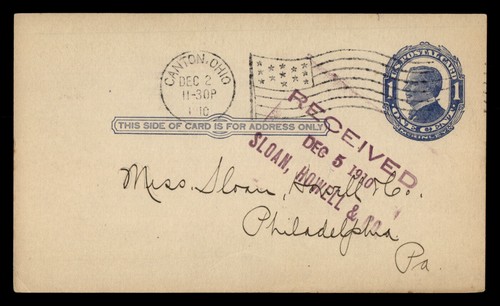 CANTON, OHIO
DEC 2
11-30P
1910
U.S. POSTAL CARD
1 1
ONE CENT
McKINLEY
THIS SIDE OF CARD IS FOR ADDRESS ONLY
RECEIVED
DEC 5 1910
SLOAN, HOWELL & CO.
Mess. Sloan, Howell & Co.
Philadelphia
Pa.